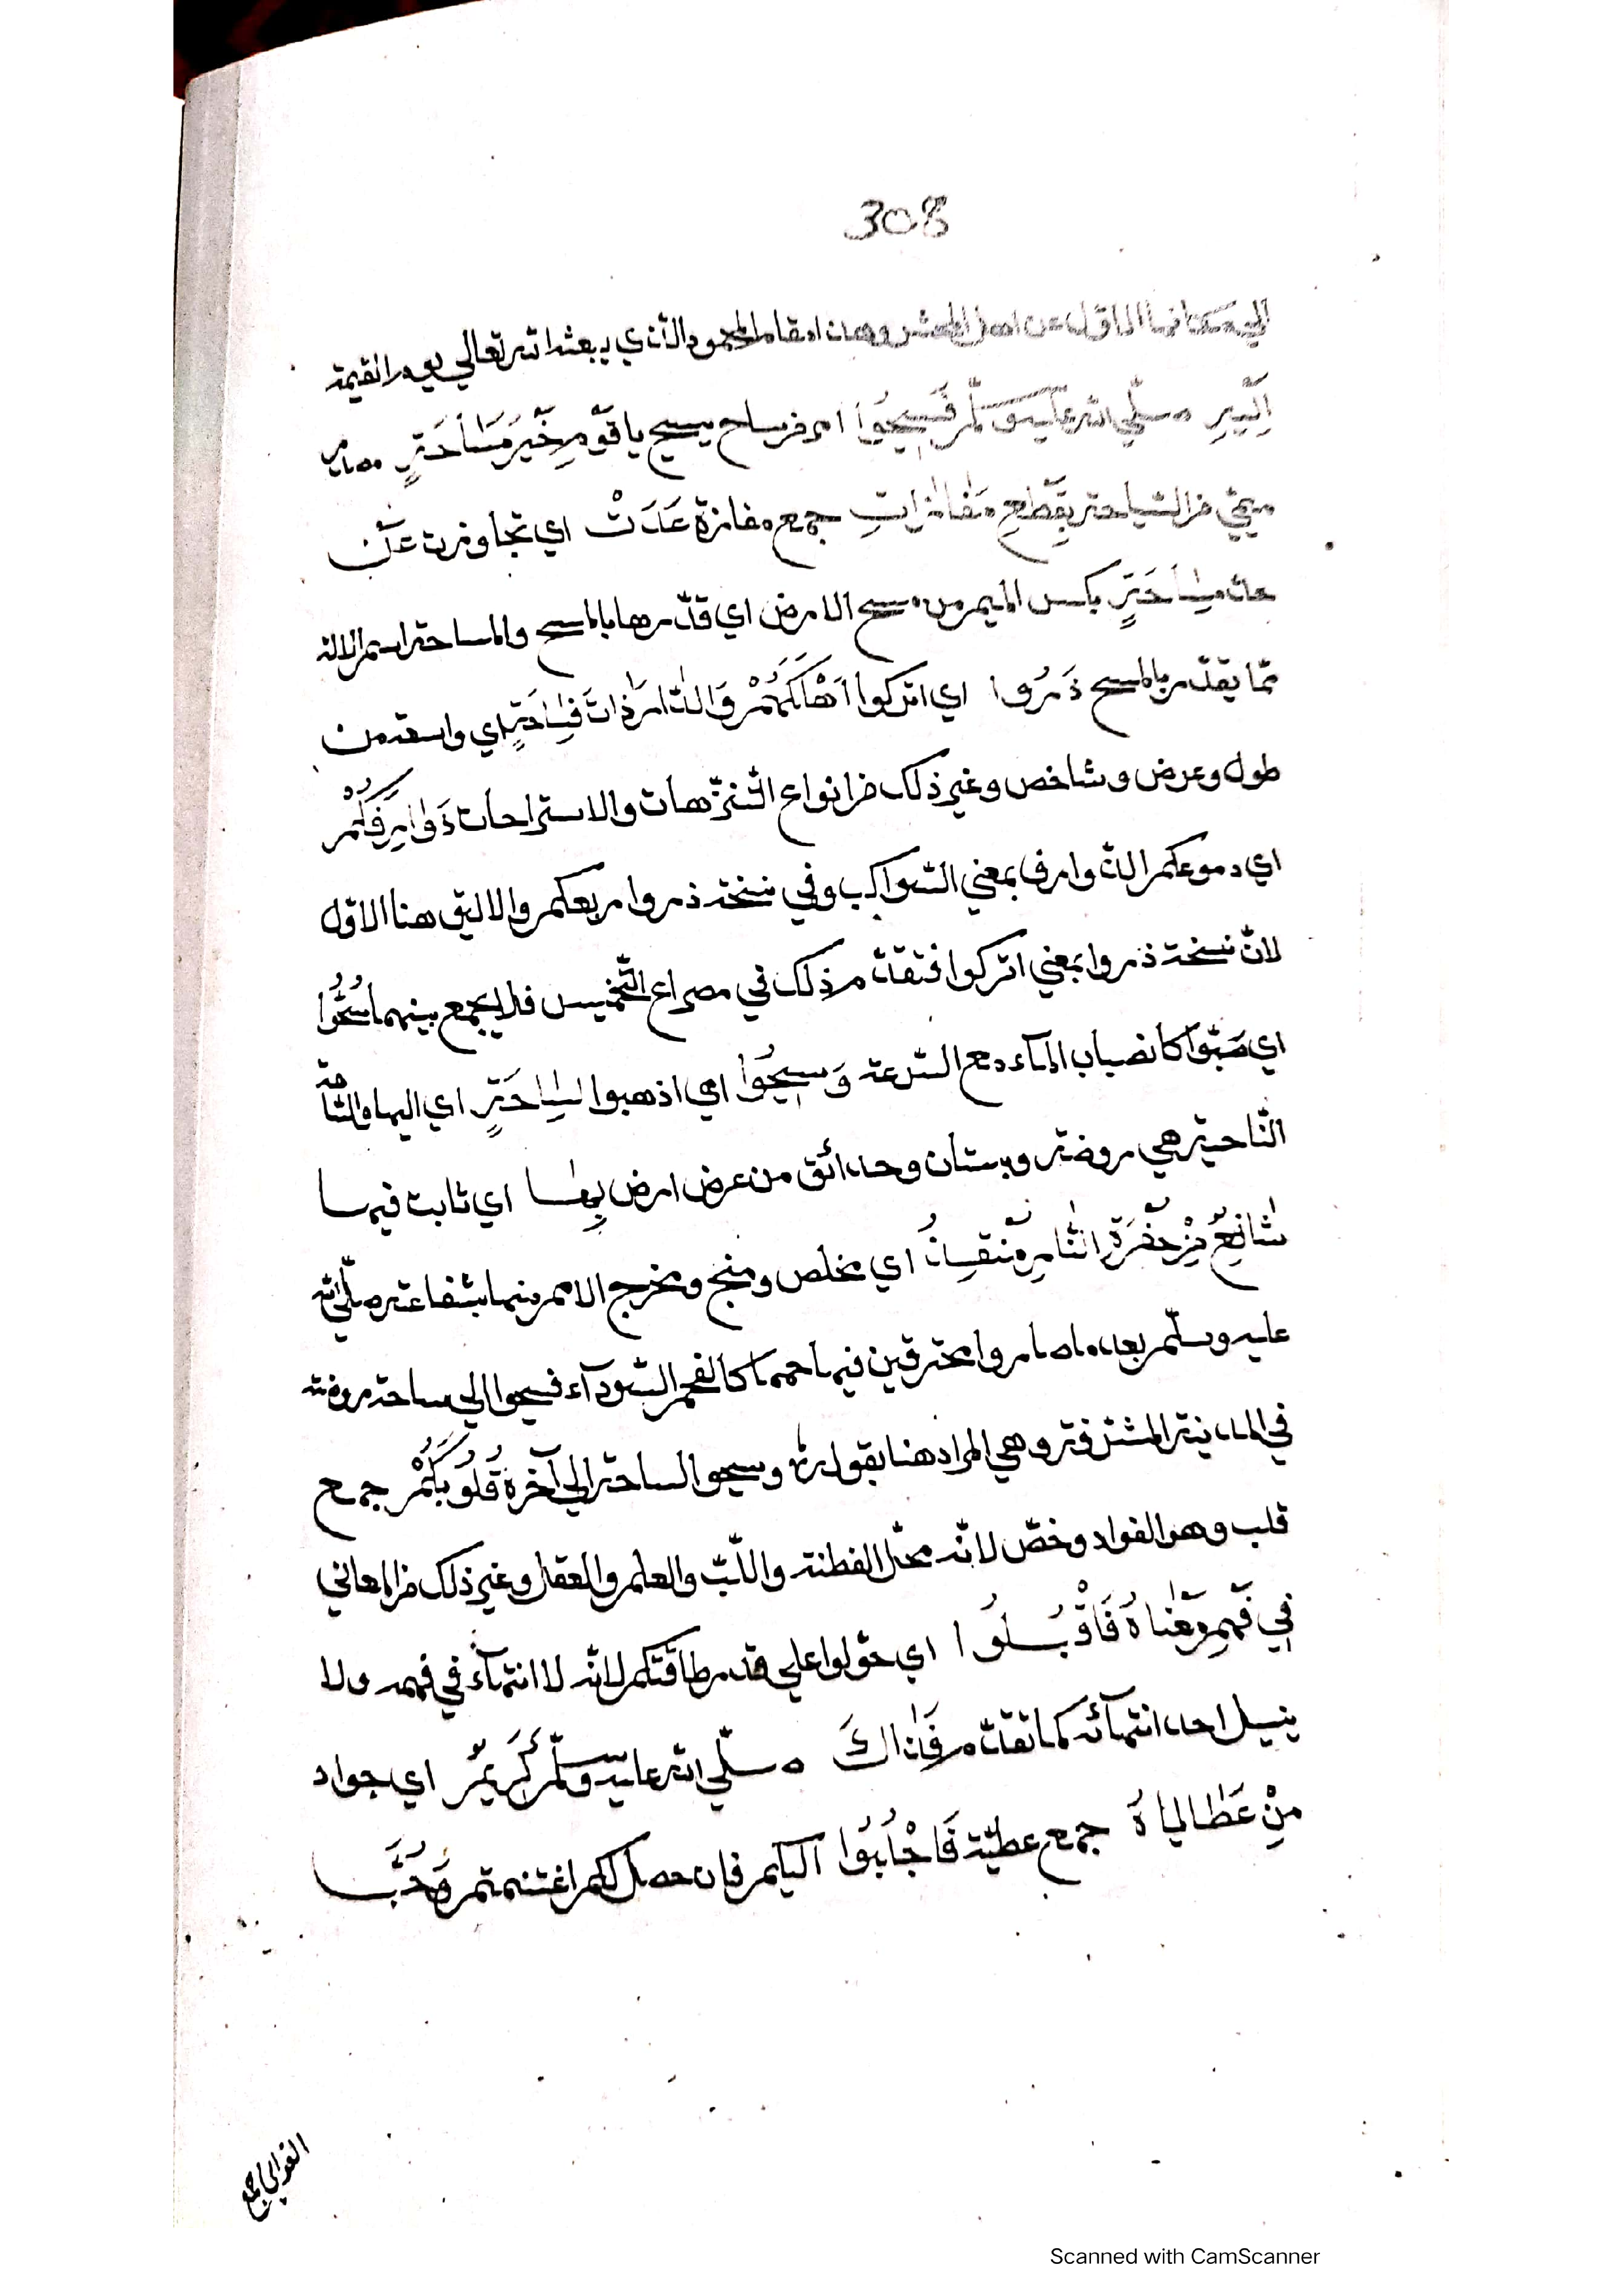 308
الي مكانها الاول عن اهل المحشر وهذا مقام المحمود الذي يبعثه الله تعالي يوم القيمة
اليه صلّي الله عليه وسلّم فَسِيحُوا امر من ساح يسيح يا قَوْمِ خَيْرَ مَسَاحَةٍ مصدر
ميمي من السياحة بِقَطْعِ مَفَازَاتٍ جمع مفازة عَدَتْ اي تجاوزت عَنْ
حد مِسَاحَةٍ بكسر الميم من مسح الارض اي قدّرها بالمسح والمساحة اسم الالة
ممّا يقدّر بالمسح ذَرُوا اي اتركوا اَهْلَكُمْ وَالدَّارَ ذَاتَ فِسَاحَةٍ اي واسعة من
طول وعرض وشاخص وغير ذلك من انواع التنزّهات والاستراحات ذَوَارِفَكُمْ
اي دموعكم الذّوارف بمعني السّواكب وفي نسخة ذروا ربعكم والاليق هنا الاول
لانّ نسخة ذروا بمعني اتركوا فتقدّم ذلك في مصراع التّخميس فلا يجمع بينهما سُحُّوا
اي صَبّوا كانصباب المآء مع السّرعة وَسِيحُوا اي اذهبوا لِسَاحَةٍ اي اليها والسّاحة
النّاحية هي روضة وبستان وحدائق من عرض ارض بِهَا اي ثابت فيها
شَافِعٌ مِنْ حُفْرَةِ النَّارِ مُنْقِذُ اي مخلص ومنج ومخرج الامم منها بشفاعته صلّي الله
عليه وسلّم بعد ما صاروا محترقين فيها حمما كالفحم السّودآء فسيحوا الي ساحة روضته
في المدينة المشرّفة وهي المراد هنا بقوله وسيحوا لساحة الي آخره قُلُوبَكُمْ جمع
قلب وهو الفواد وخصّ لانّه محلّ الفطنة واللّبّ والعلم والعقل وغير ذلك من المعاني
فِي فَهْمِ مَعْنَاهُ فَاقْبِلُوا اي حوّلوا علي قدر طاقتكم لانّه لا انتهآء في فهمه ولا
ينيل احد انتهآئه كما تقدّم فَذَاكَ صلّي الله عليه وسلّم كَرِيمٌ اي جواد
مِنْ عَطَايَاهُ جمع عطيّة فَاجْلِبُوا اليكم فان حصل لكم اغتنمتم وَحُبًّا